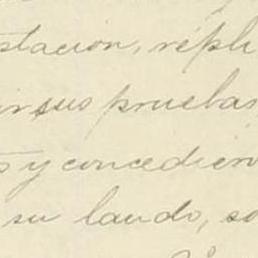 stacion, répli
ir sus pruebas
s y concedien
su laudo, so